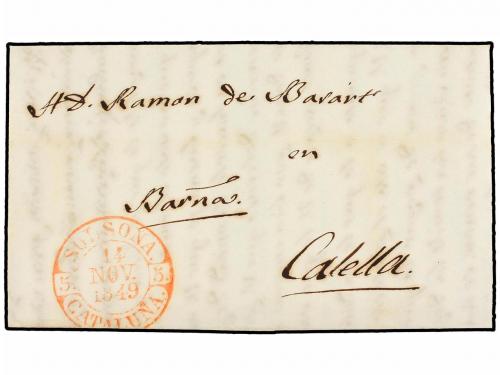 A D. Ramon de Basart
en
Barña.
Calella.
SOLSONA.
14
NOV.
5. 5.
1849
CATALUÑA.